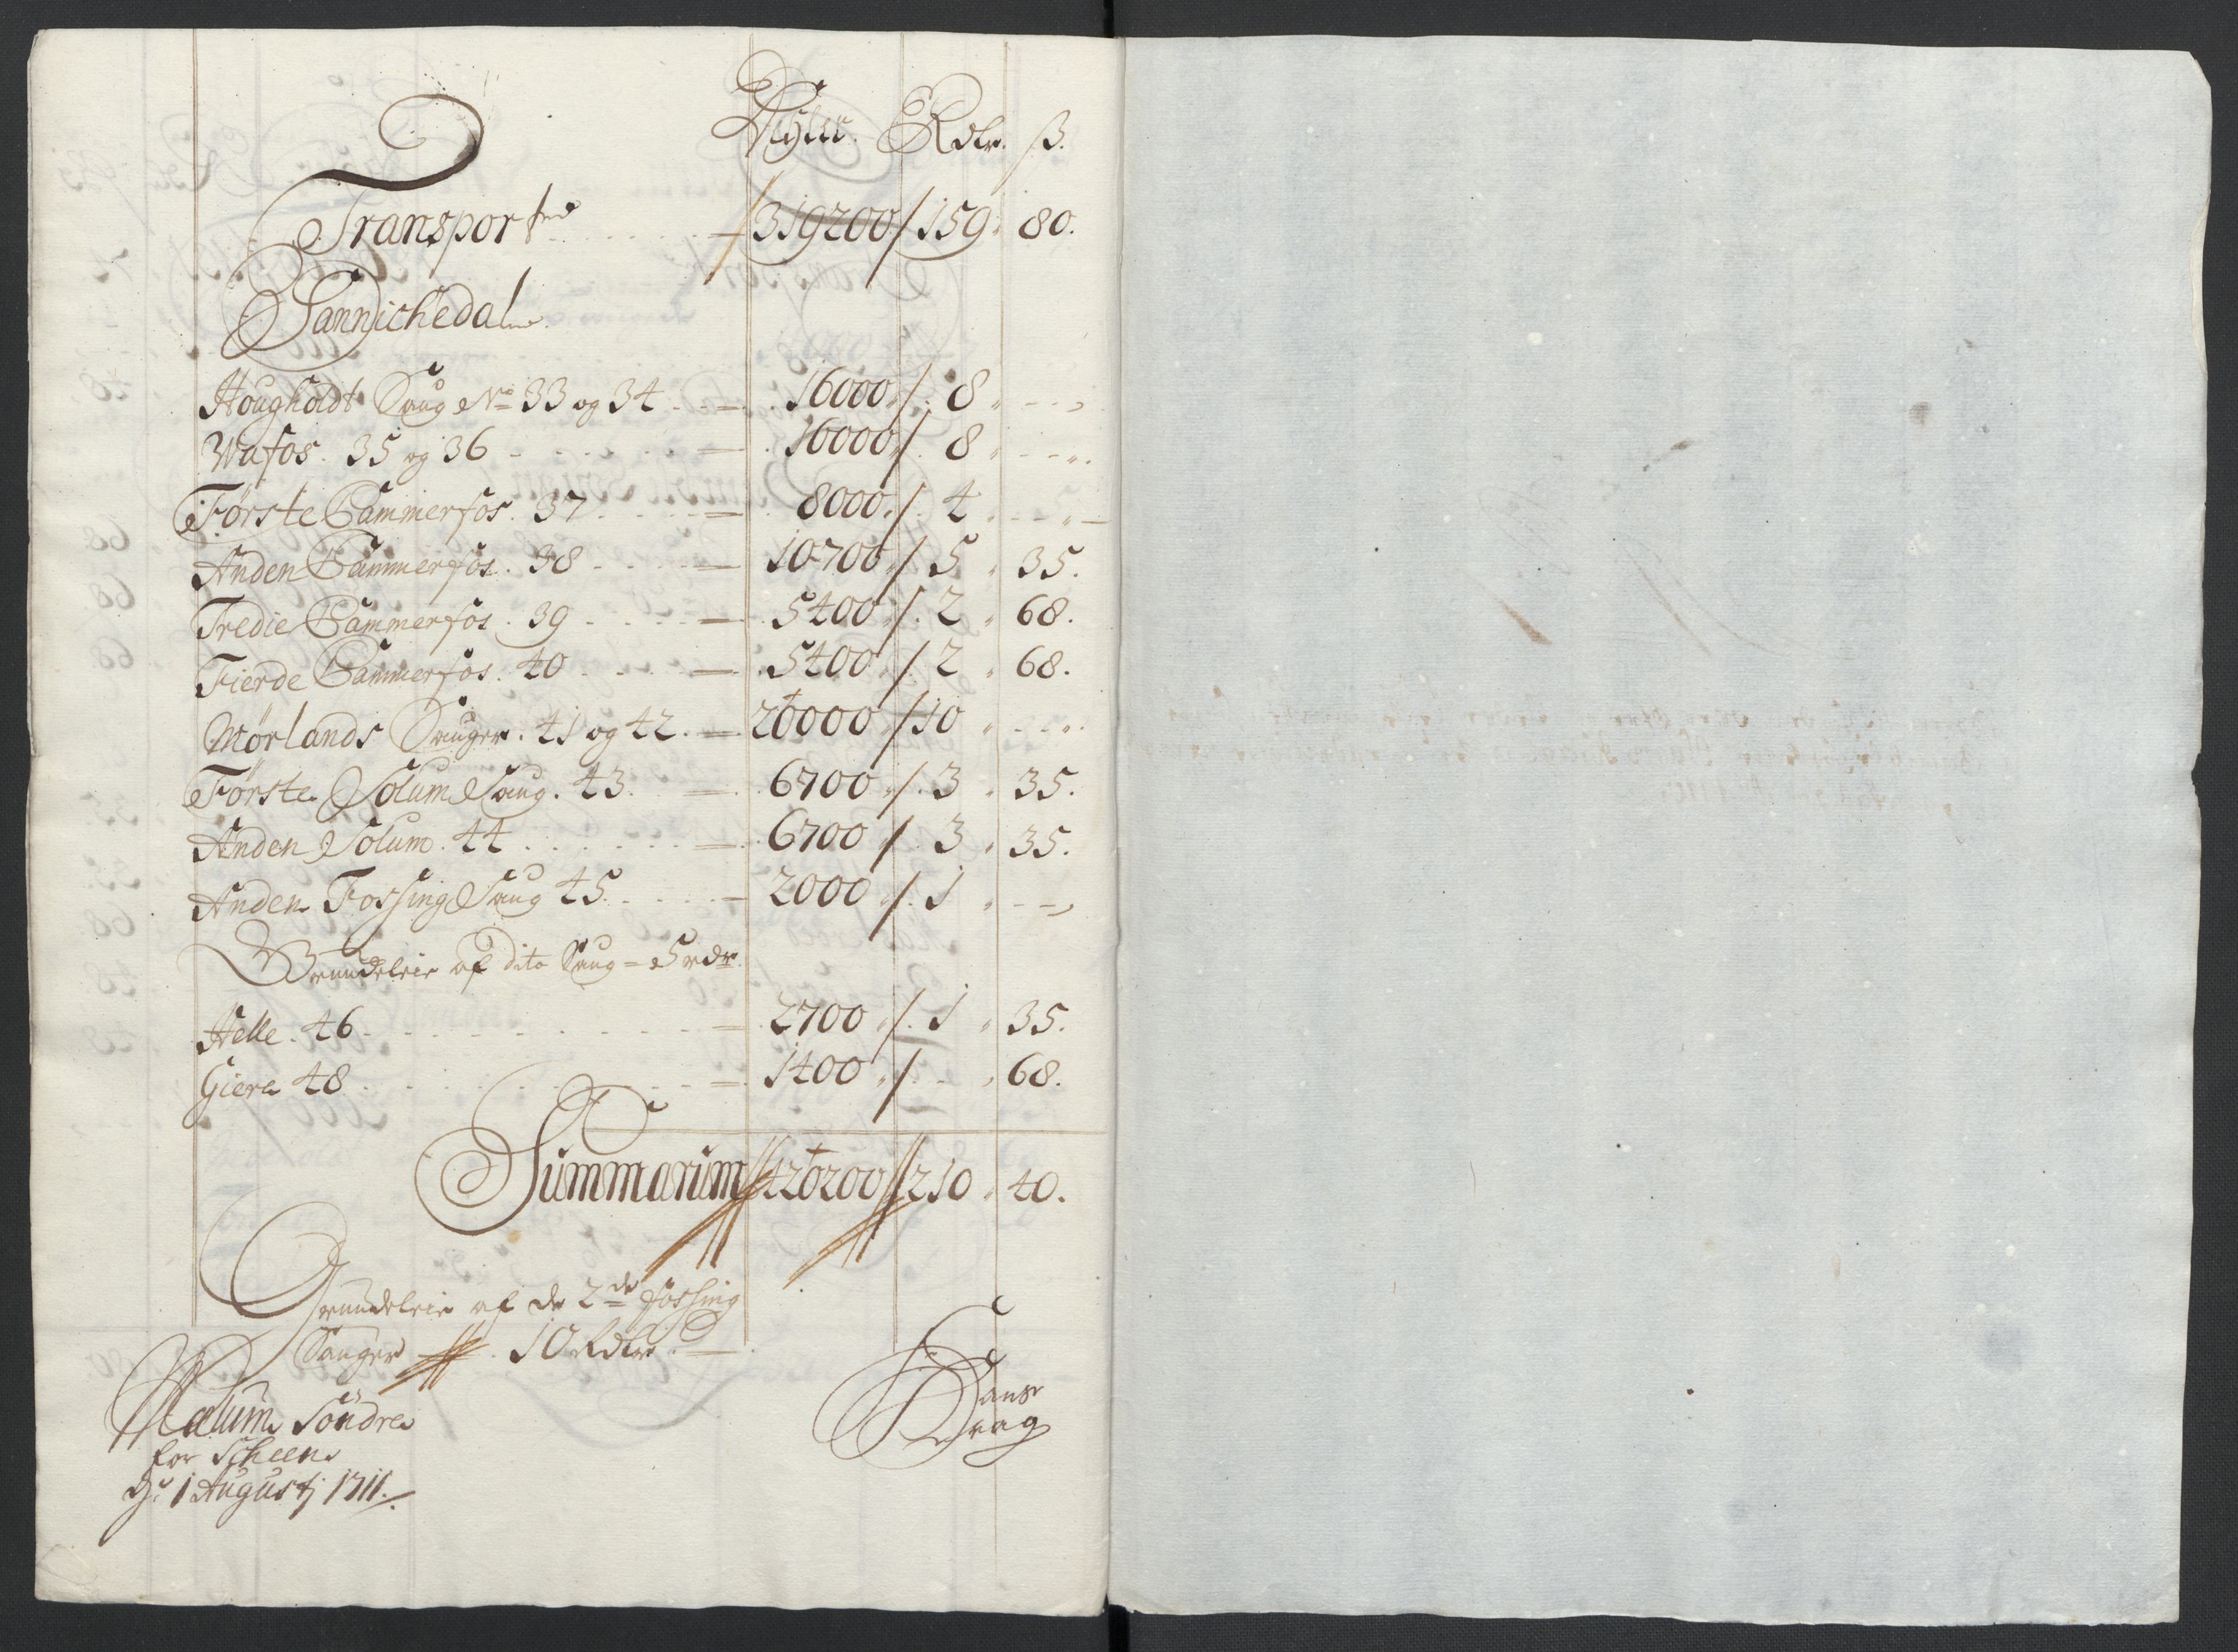 Rdlr. ß.
Transport 319200 / 159. 80.
Sannichedal
Houghholdt Saug No 33 og 34 16000 / 8
Wafos. 35 og 36 16000 / 8
Første Cammerfos. 37 8000 / 4
Anden Cammerfos. 38 10700 / 5 35.
Tredie Cammerfos. 39 5400 / 2 68.
Fierde Cammerfos. 40 5400 / 2 68.
Mørlands Sauger. 41 og 42. 20000 / 10
Første Solum Saug. 43. 6700 / 3 35.
Anden Solum. 44 6700 / 3 35.
Anden Fossing Saug 45. 2000 / 1
Grundeleie af dito Saug = 5 rdr
Helle. 46 2700 / 1 35.
Giere 48 1400 / 68.
Summarum 420200 210 40.
Grundeleie af de 2de Fossing
Sauger 10 Rdlr.
Mælum Söndre
for Scheen
D: 1 Augustj 1711.
Hans
Krag